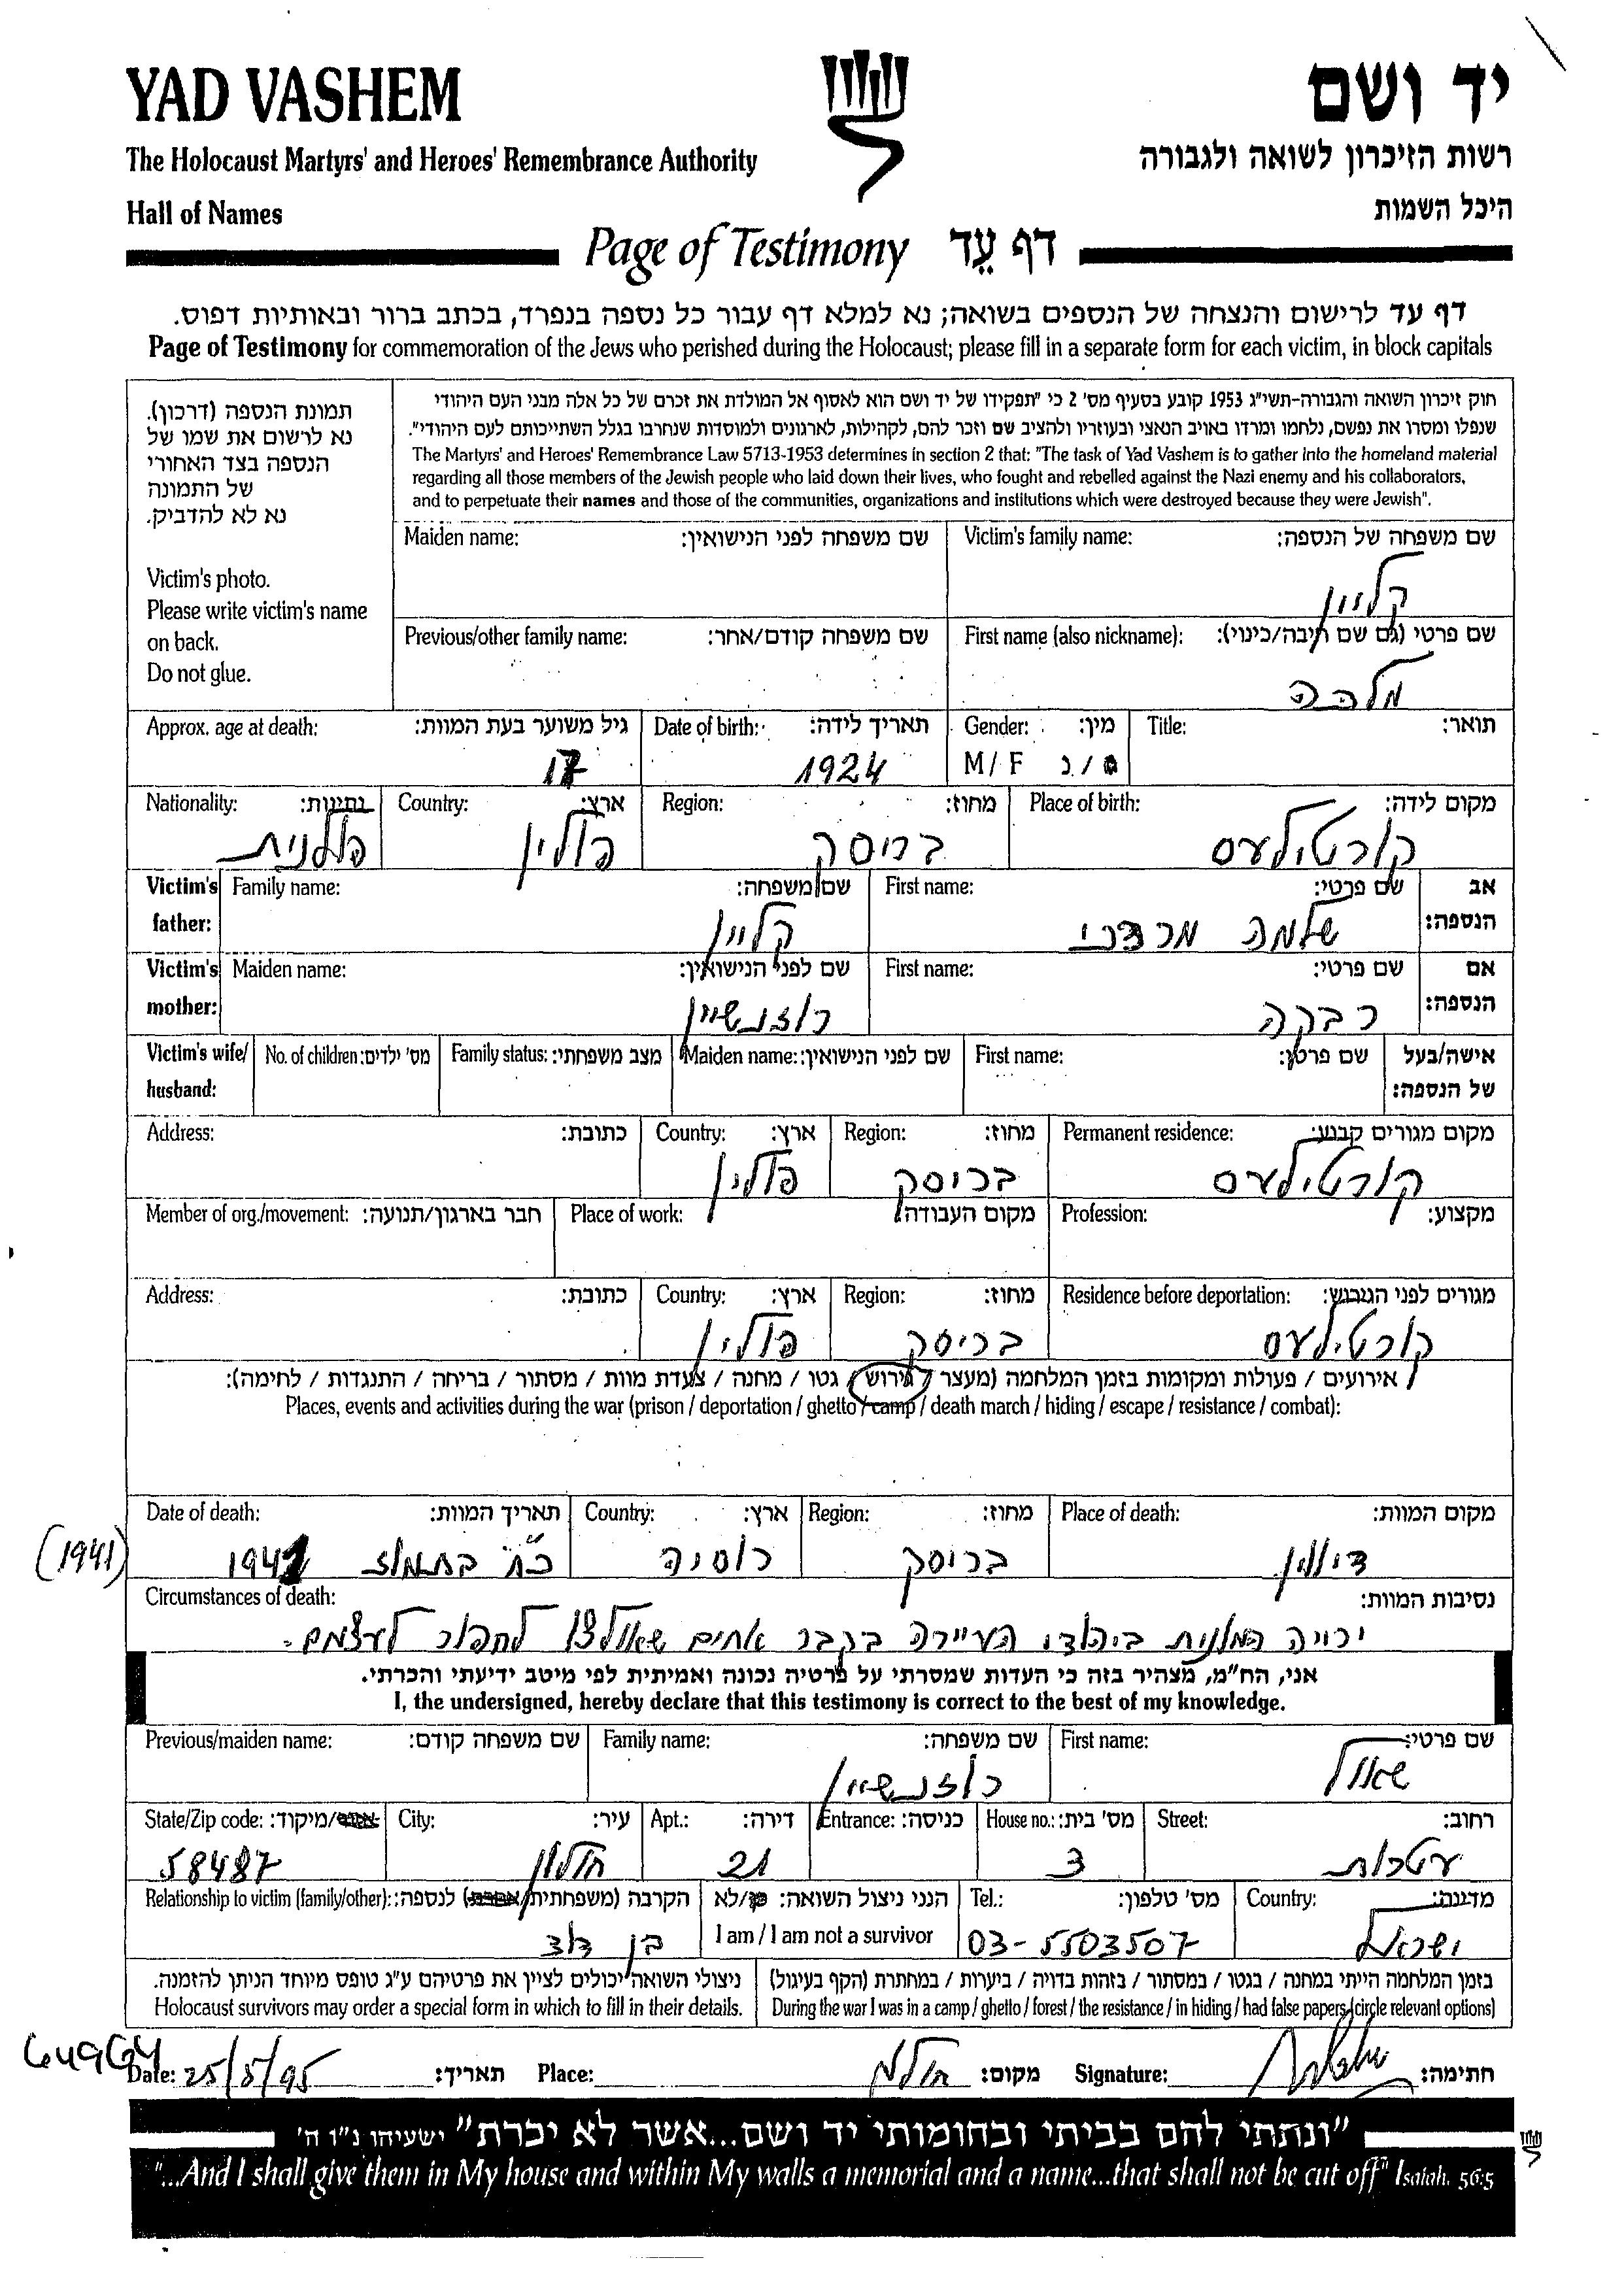 YAD VASHEM
The Holocaust Martyrs' and Heroes' Remembrance Authority
Hall of Names
יד ושם
רשות הזיכרון לשואה ולגבורה
היכל השמות
Page of Testimony דף עֵד
דף עד לרישום והנצחה של הנספים בשואה; נא למלא דף עבור כל נספה בנפרד, בכתב ברור ובאותיות דפוס.
Page of Testimony for commemoration of the Jews who perished during the Holocaust; please fill in a separate form for each victim, in block capitals
תמונת הנספה (דרכון).
נא לרשום את שמו של
הנספה בצד האחורי
של התמונה
נא לא להדביק.
Victim's photo.
Please write victim's name
on back.
Do not glue.
חוק זיכרון השואה והגבורה-תשי"ג 1953 קובע בסעיף מס' 2 כי "תפקידו של יד ושם הוא לאסוף אל המולדת את זכרם של כל אלה מבני העם היהודי
שנפלו ומסרו את נפשם, נלחמו ומרדו באויב הנאצי ובעוזריו ולהציב שם וזכר להם, לקהילות, לארגונים ולמוסדות שנחרבו בגלל השתייכותם לעם היהודי".
The Martyrs' and Heroes' Remembrance Law 5713-1953 determines in section 2 that: "The task of Yad Vashem is to gather into the homeland material
regarding all those members of the Jewish people who laid down their lives, who fought and rebelled against the Nazi enemy and his collaborators,
and to perpetuate their names and those of the communities, organizations and institutions which were destroyed because they were Jewish".
Maiden name: שם משפחה לפני הנישואין: Victim's family name: שם משפחה של הנספה:
קליין
Previous/other family name: שם משפחה קודם/אחר: First name (also nickname): שם פרטי (גם שם חיבה/כינוי):
מלכה
Approx. age at death: גיל משוער בעת המוות: Date of birth: תאריך לידה: Gender: מין: Title: תואר:
17 1924 M/F ז/נ
Nationality: נתינות: Country: ארץ: Region: מחוז: Place of birth: מקום לידה:
פולנית פולין בריסק קורטילעס
Victim's father: Family name: שם משפחה: First name: שם פרטי: אב הנספה:
קליין שלמה מרדכי
Victim's mother: Maiden name: שם לפני הנישואין: First name: שם פרטי: אם הנספה:
רוזנשיין רבקה
Victim's wife/husband: No. of children: מס' ילדים: Family status: מצב משפחתי: Maiden name: שם לפני הנישואין: First name: שם פרטי: אישה/בעל של הנספה:
Address: כתובת: Country: ארץ: Region: מחוז: Permanent residence: מקום מגורים קבוע:
פולין בריסק קורטילעס
Member of org./movement: חבר בארגון/תנועה: Place of work: מקום העבודה: Profession: מקצוע:
Address: כתובת: Country: ארץ: Region: מחוז: Residence before deportation: מגורים לפני הגירוש:
פולין בריסק קורטילעס
אירועים / פעולות ומקומות בזמן המלחמה (מעצר / גירוש / גטו / מחנה / צעדת מוות / מסתור / בריחה / התנגדות / לחימה):
Places, events and activities during the war (prison / deportation / ghetto / camp / death march / hiding / escape / resistance / combat):
Date of death: תאריך המוות: Country: ארץ: Region: מחוז: Place of death: מקום המוות:
(1941) 1941 בתמוז רוסיה בריסק דיוין
Circumstances of death: נסיבות המוות:
ירויה המונית ביהודי העיירה בקבר אחים שאולצו לחפור לעצמם.
אני, הח"מ, מצהיר בזה כי העדות שמסרתי על פרטיה נכונה ואמיתית לפי מיטב ידיעתי והכרתי.
I, the undersigned, hereby declare that this testimony is correct to the best of my knowledge.
Previous/maiden name: שם משפחה קודם: Family name: שם משפחה: First name: שם פרטי:
רוזנשיין שאול
State/Zip code: מיקוד/ City: עיר: Apt.: דירה: Entrance: כניסה: House no.: מס' בית: Street: רחוב:
58487 חולון 21 3 עטרות
Relationship to victim (family/other): הקרבה (משפחתית/אחרת) לנספה: הנני ניצול השואה: כן/לא Tel.: מס' טלפון: Country: מדינה:
I am / I am not a survivor
בן דוד 03-5503507 ישראל
ניצולי השואה יכולים לציין את פרטיהם ע"ג טופס מיוחד הניתן להזמנה.
Holocaust survivors may order a special form in which to fill in their details.
בזמן המלחמה הייתי במחנה / בגטו / במסתור / בזהות בדויה / ביערות / במחתרת (הקף בעיגול)
During the war I was in a camp / ghetto / forest / the resistance / in hiding / had false papers (circle relevant options)
Date: 25/5/95 תאריך: Place: חולון מקום: Signature: חתימה:
"ונתתי להם בביתי ובחומותי יד ושם...אשר לא יכרת" ישעיהו נ"ו ה'
"...And I shall give them in My house and within My walls a memorial and a name...that shall not be cut off" Isaiah. 56:5